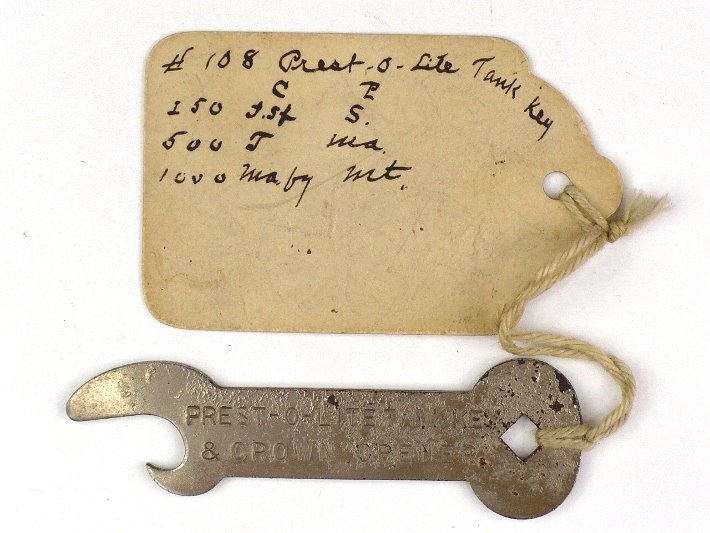 # 108 Prest-O-Lite Tank Key
C P
250 S.
500 T Ma.
1000 Ma. by Mt.
PREST-O-LITE TANK KEY
& CROWN OPENER